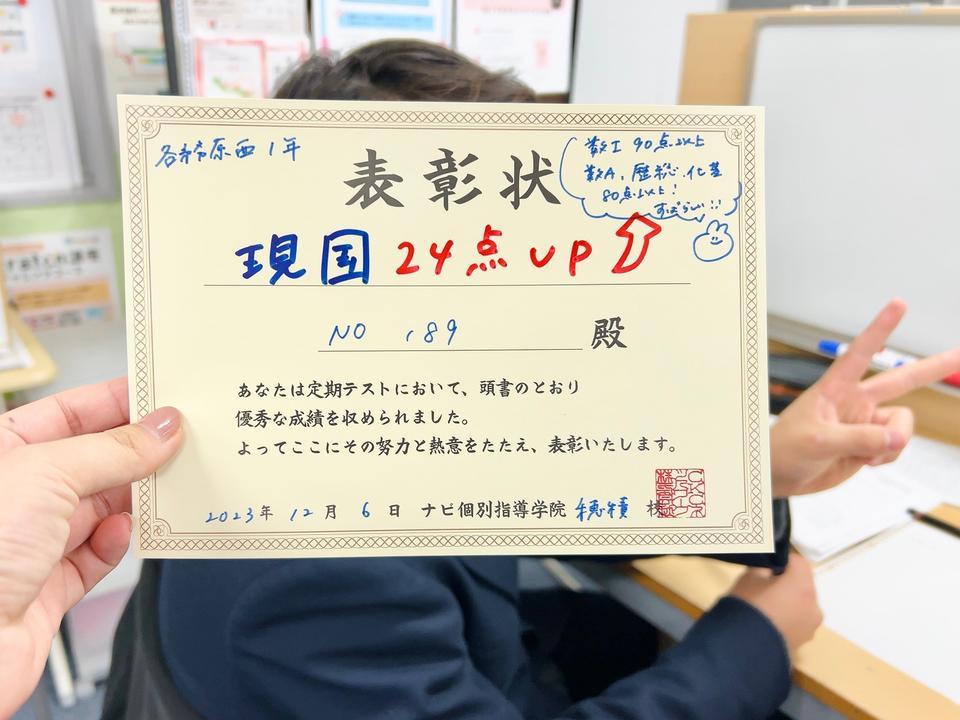 各務原西1年
表彰状
数I 90点以上
数A、歴総、化基
80点以上!
すばらしい!!
現国 24点UP
NO 189 殿
あなたは定期テストにおいて、頭書のとおり
優秀な成績を収められました。
よってここにその努力と熱意をたたえ、表彰いたします。
2023年 12月 6日 ナビ個別指導学院 穂積 校